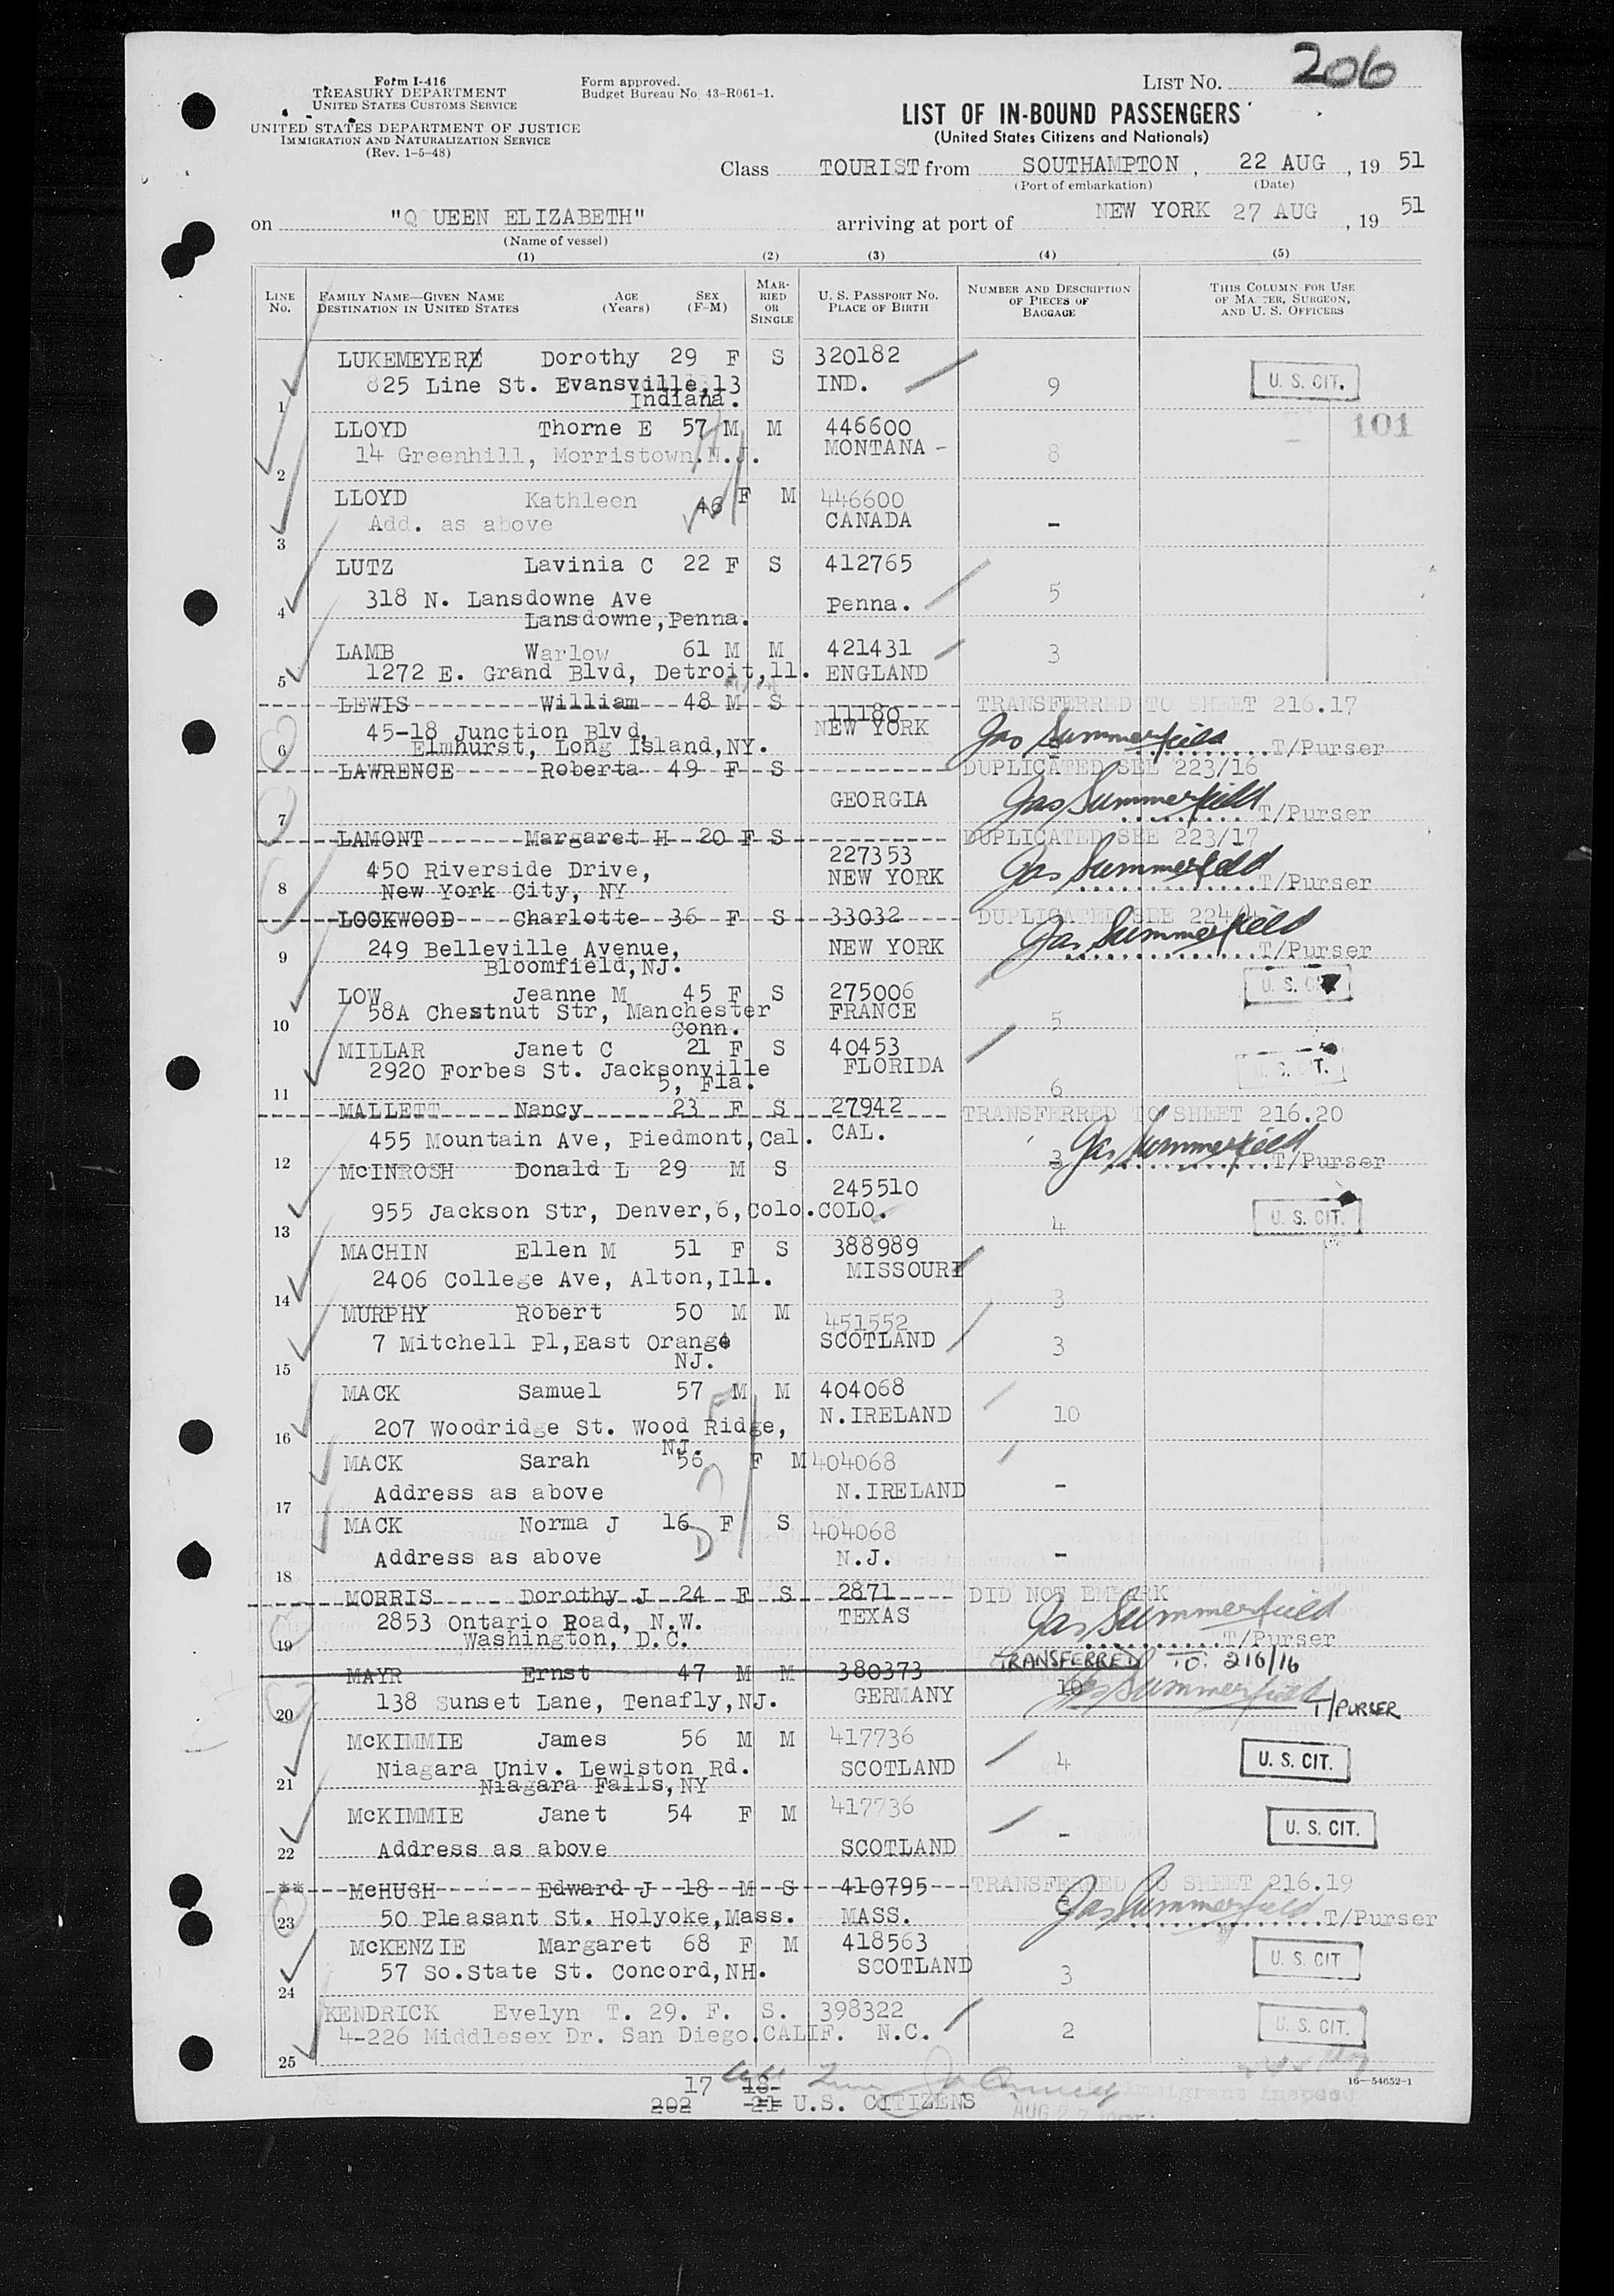 206
Form I-416
TREASURY DEPARTMENT
UNITED STATES CUSTOMS SERVICE
UNITED STATES DEPARTMENT OF JUSTICE
IMMIGRATION AND NATURALIZATION SERVICE
(Rev. 1-5-48)
Form approved.
Budget Bureau No. 43-R061-1.
LIST NO.
LIST OF IN-BOUND PASSENGERS
(United States Citizens and Nationals)
Class TOURIST from SOUTHAMPTON, 22 AUG, 19 51
(Port of embarkation) (Date)
on "QUEEN ELIZABETH" arriving at port of NEW YORK 27 AUG, 19 51
(Name of vessel)
(1) (2) (3) (4) (5)
LINE NO. FAMILY NAME—GIVEN NAME DESTINATION IN UNITED STATES AGE (Years) SEX (F-M) MARRIED OR SINGLE U. S. PASSPORT NO. PLACE OF BIRTH NUMBER AND DESCRIPTION OF PIECES OF BAGGAGE THIS COLUMN FOR USE OF MASTER, SURGEON, AND U. S. OFFICERS
LUKEMEYER Dorothy 29 F S 320182
825 Line St. Evansville,13 IND. 9 U. S. CIT.
1 Indiana.
LLOYD Thorne E 57 M M 446600 101
14 Greenhill, Morristown.N.J. MONTANA - 8
2
LLOYD Kathleen 46 F M 446600
Add. as above CANADA -
3
LUTZ Lavinia C 22 F S 412765
318 N. Lansdowne Ave Penna. 5
4 Lansdowne,Penna.
LAMB Warlow 61 M M 421431 3
5 1272 E. Grand Blvd, Detroit,11. ENGLAND
LEWIS William 48 M S 11180 TRANSFERRED TO SHEET 216.17
45-18 Junction Blvd, NEW YORK Jas Summerfield
6 Elmhurst, Long Island,NY. T/Purser
LAWRENCE Roberta 49 F S DUPLICATED SEE 223/16
GEORGIA Jas Summerfield
7 T/Purser
LAMONT Margaret H 20 F S DUPLICATED SEE 223/17
227353
450 Riverside Drive, NEW YORK Jas Summerfield
8 New York City, NY T/Purser
LOCKWOOD Charlotte 36 F S 33032 DUPLICATED SEE
249 Belleville Avenue, NEW YORK Jas Summerfield
9 Bloomfield,NJ. T/Purser
LOW Jeanne M 45 F S 275006 U. S. CIT.
58A Chestnut Str, Manchester FRANCE 5
10 Conn.
MILLAR Janet C 21 F S 40453
2920 Forbes St. Jacksonville FLORIDA U. S. CIT.
11 5, Fla. 6
MALLETT Nancy 23 F S 27942 TRANSFERRED TO SHEET 216.20
455 Mountain Ave, Piedmont,Cal. CAL. Jas Summerfield
12 3 T/Purser
McINROSH Donald L 29 M S
245510
955 Jackson Str, Denver,6,Colo. COLO. 4 U. S. CIT.
13
MACHIN Ellen M 51 F S 388989
2406 College Ave, Alton,Ill. MISSOURI
14 3
MURPHY Robert 50 M M 451552
7 Mitchell Pl,East Orange SCOTLAND 3
15 NJ.
MACK Samuel 57 M M 404068
207 Woodridge St. Wood Ridge, N.IRELAND 10
16 NJ.
MACK Sarah 56 F M 404068
Address as above N.IRELAND -
17
MACK Norma J 16 F S 404068
Address as above N.J. -
18
MORRIS Dorothy J 24 F S 2871 DID NOT EMBARK
2853 Ontario Road, N.W. TEXAS Jas Summerfield
19 Washington, D.C. T/Purser
MAYR Ernst 47 M M 380373 TRANSFERRED TO. 216/16
138 Sunset Lane, Tenafly,NJ. GERMANY 10 Jas Summerfield
20 T/PURSER
McKIMMIE James 56 M M 417736
Niagara Univ. Lewiston Rd. SCOTLAND 4 U. S. CIT.
21 Niagara Falls,NY
McKIMMIE Janet 54 F M 417736
Address as above SCOTLAND - U. S. CIT.
22
** McHUGH Edward J 18 M S 410795 TRANSFERRED TO SHEET 216.19
50 Pleasant St. Holyoke,Mass. MASS. Jas Summerfield
23 T/Purser
McKENZIE Margaret 68 F M 418563
57 So.State St. Concord,NH. SCOTLAND 3 U. S. CIT
24
KENDRICK Evelyn T. 29. F. S. 398322
4-226 Middlesex Dr. San Diego.CALIF. N.C. 2 U. S. CIT.
25
16-54652-1
17 18
202 21 U.S. CITIZENS
Immigrant Inspector
AUG 27